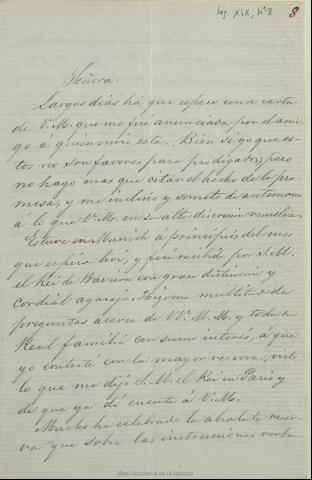 Leg. XIX, nº 8
8
Señora
Largos dias há que espero una carta
de V. M. que me fué anunciada por el ami-
go á quien envio esta. Bien sé yo que es-
tos no son favores para prodigados; pero
no hago mas que citar el hecho de la pro-
mesa, y me inclino y someto de antemano
á lo que V. M. en su alta discrecion resuelva.
Estuve en Munich á principios del mes
que espira hoy, y fui recibido por S. M.
el Rei de Baviera con gran distincion y
cordiál agasajo. Hizome multitud de
preguntas acerca de VV. M. M. y toda su
Real familia con sumo interés, á que
yo contesté con la mayor reserva, visto
lo que me dijo S. M. el Rei en Paris y
de que ya dí cuenta á V. M.
Mucho he celebrado la absoluta reser-
va que sobre las instrucciones verba-
Real Academia de la Historia